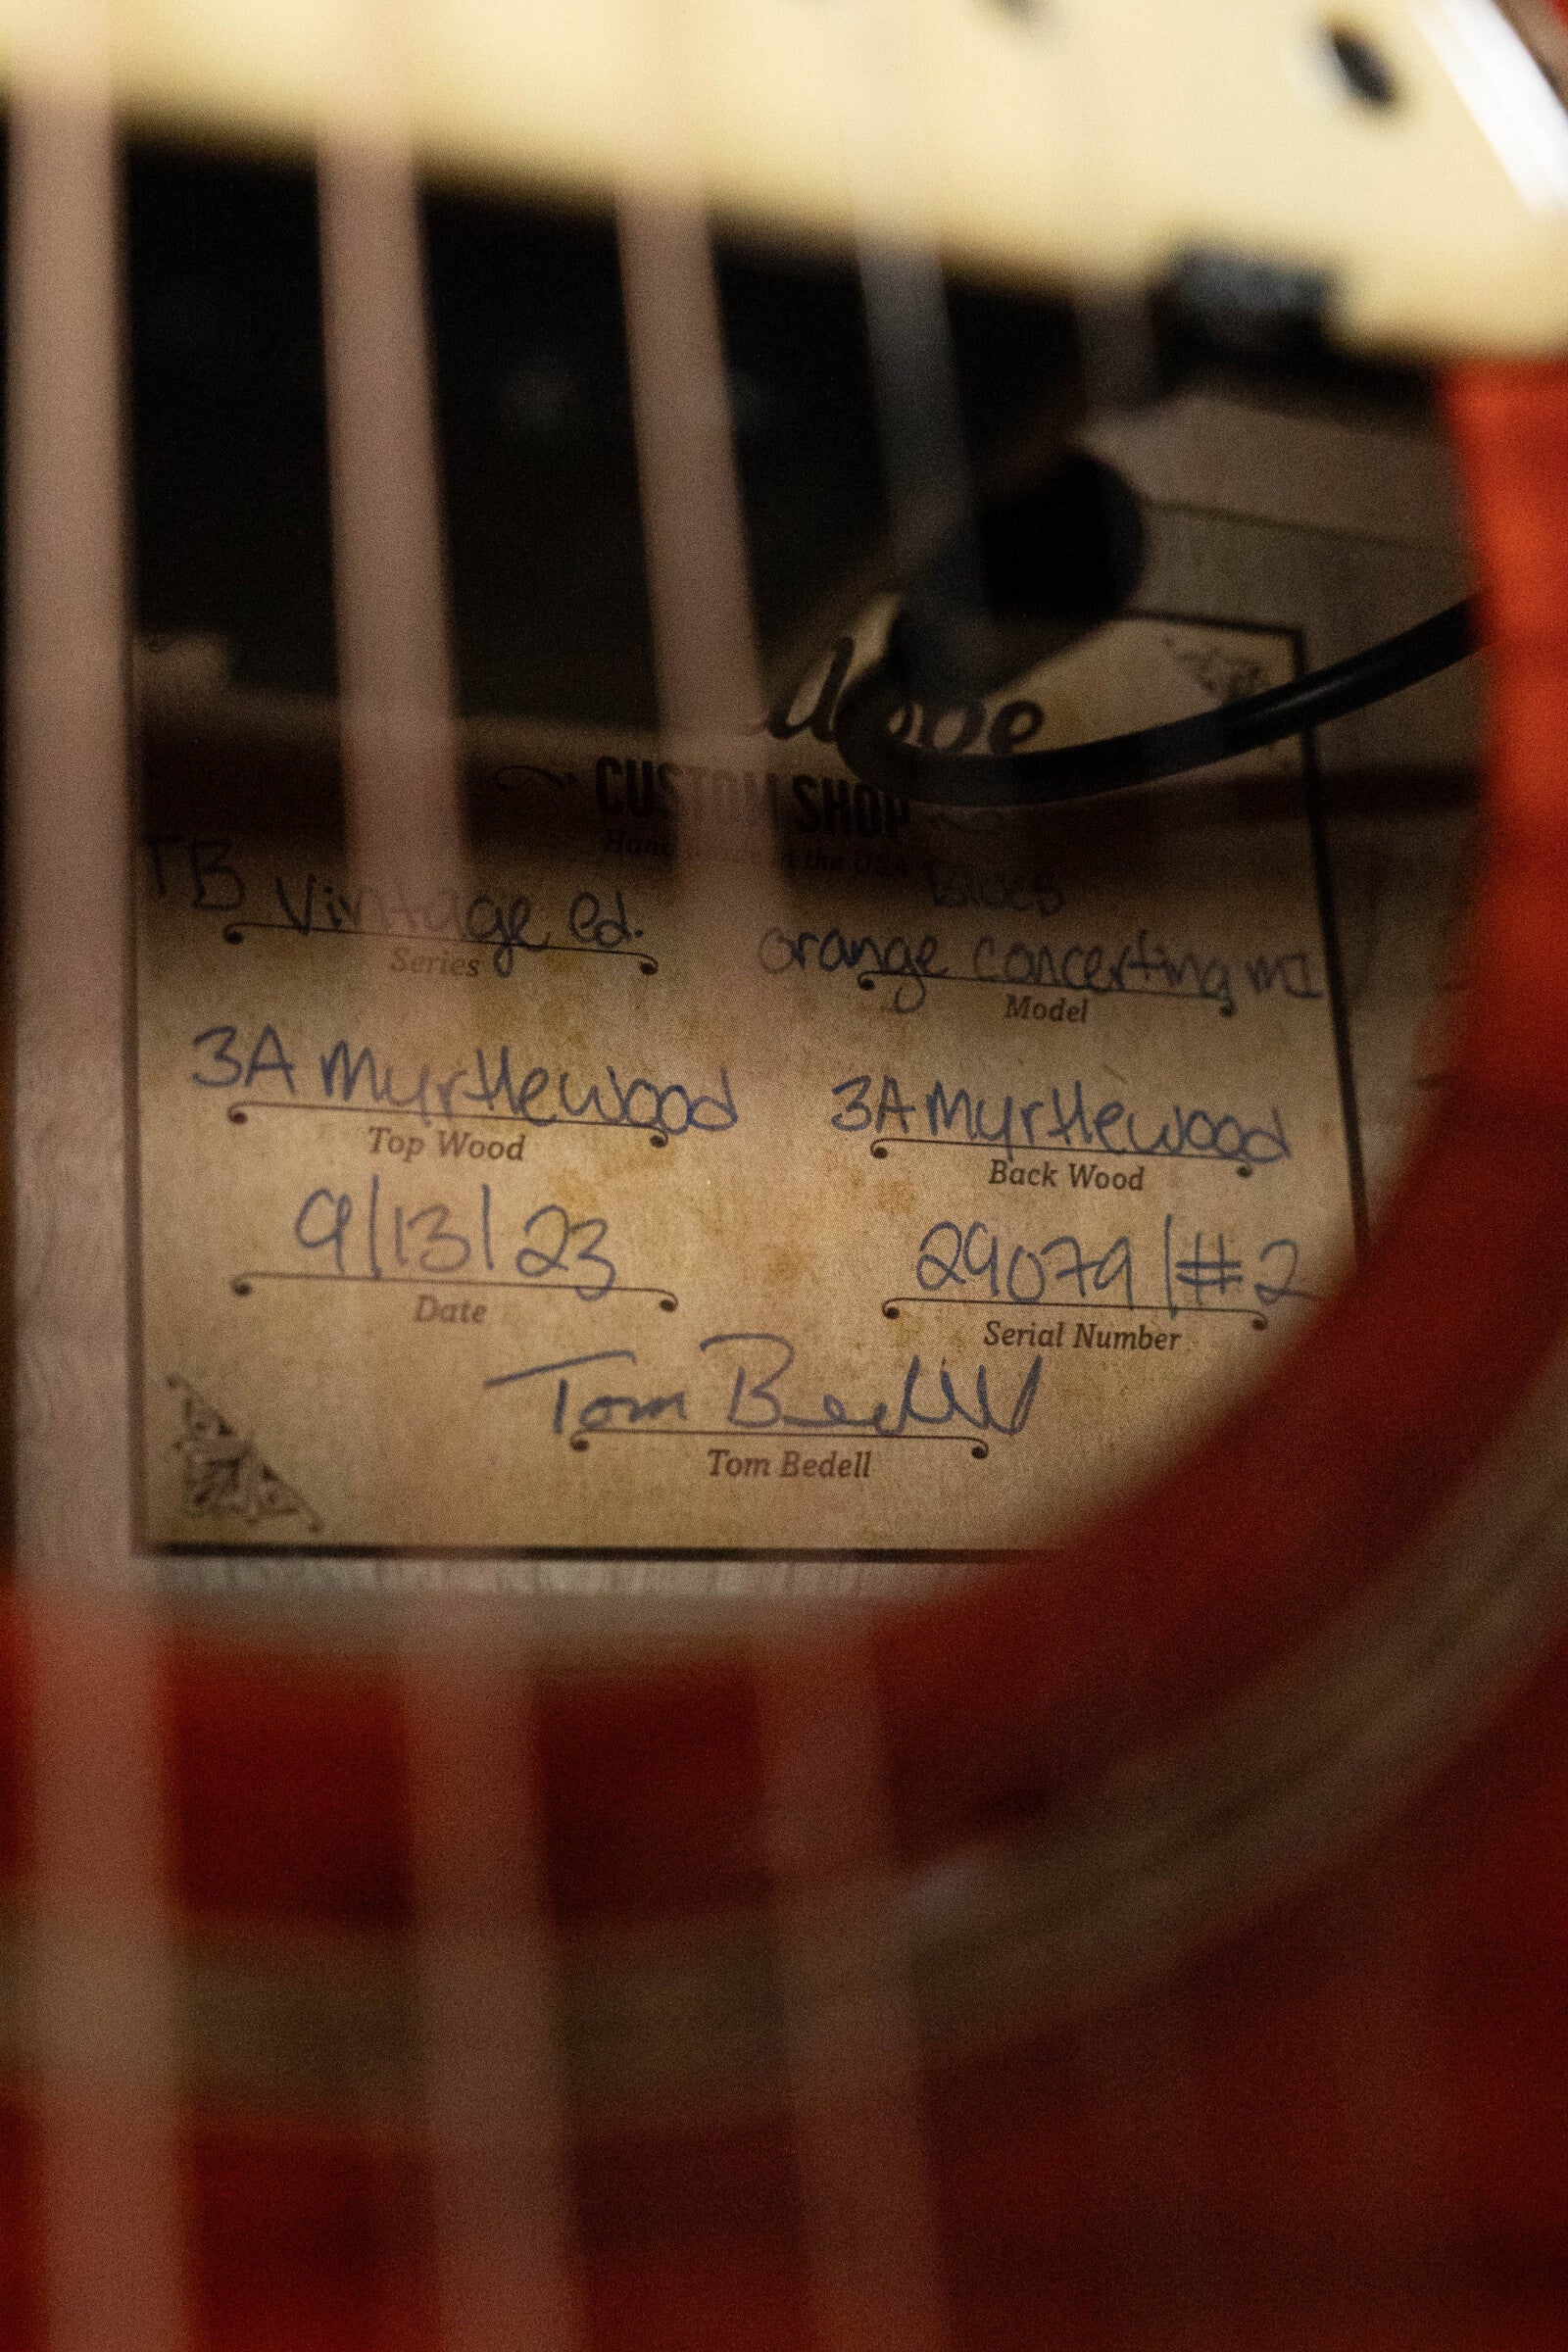 CUSTOM SHOP
Handmade in the USA
TB Vintage ed.
Series
Blues
Orange concertina M I
Model
3A Myrtlewood
Top Wood
3A Myrtlewood
Back Wood
9/13/23
Date
29079/#2
Serial Number
Tom Bedell
Tom Bedell